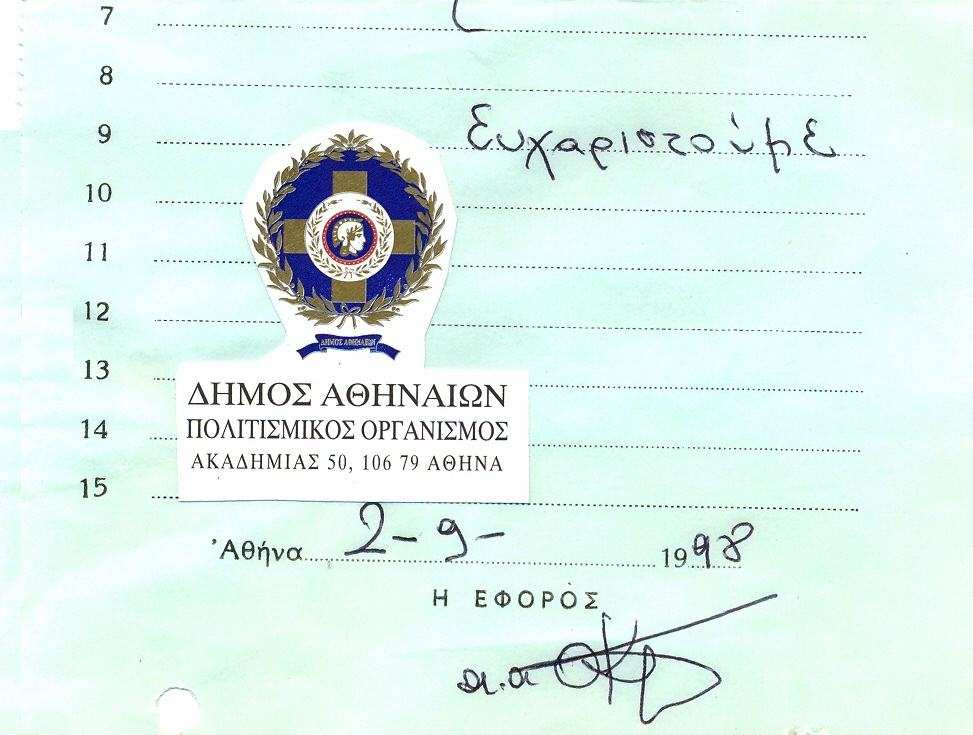 7
8
9 Ευχαριστούμε
10
11
12
ΔΗΜΟΣ ΑΘΗΝΑΙΩΝ
13
ΔΗΜΟΣ ΑΘΗΝΑΙΩΝ
14 ΠΟΛΙΤΙΣΜΙΚΟΣ ΟΡΓΑΝΙΣΜΟΣ
ΑΚΑΔΗΜΙΑΣ 50, 106 79 ΑΘΗΝΑ
15
Ἀθήνα 2-9- 1998
Η ΕΦΟΡΟΣ
α.α